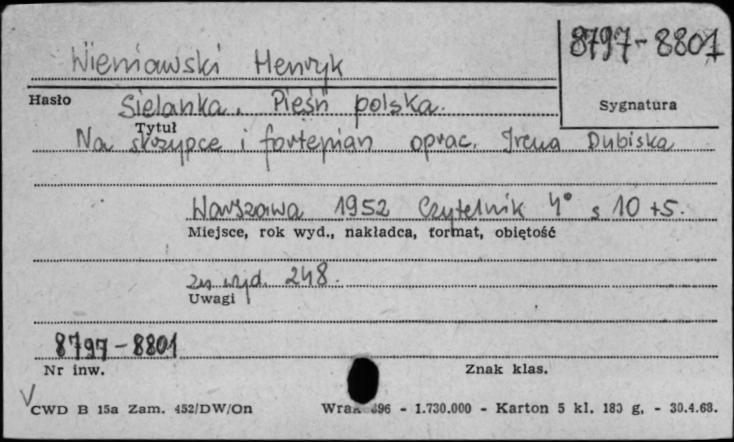 Wieniawski Henryk
8797-8801
Hasło
Sielanka. Pieśń polska.
Sygnatura
Tytuł
Na skrzypce i fortepian oprac. Irena Dubiska
Warszawa 1952 Czytelnik 4° s 10 +5.
Miejsce, rok wyd., nakładca, format, objętość
wyd. 248.
Uwagi
8797-8801
Nr inw.
Znak klas.
CWD B 15a Zam. 452/DW/On
496 - 1.730.000 - Karton 5 kl. 180 g. - 30.4.63.